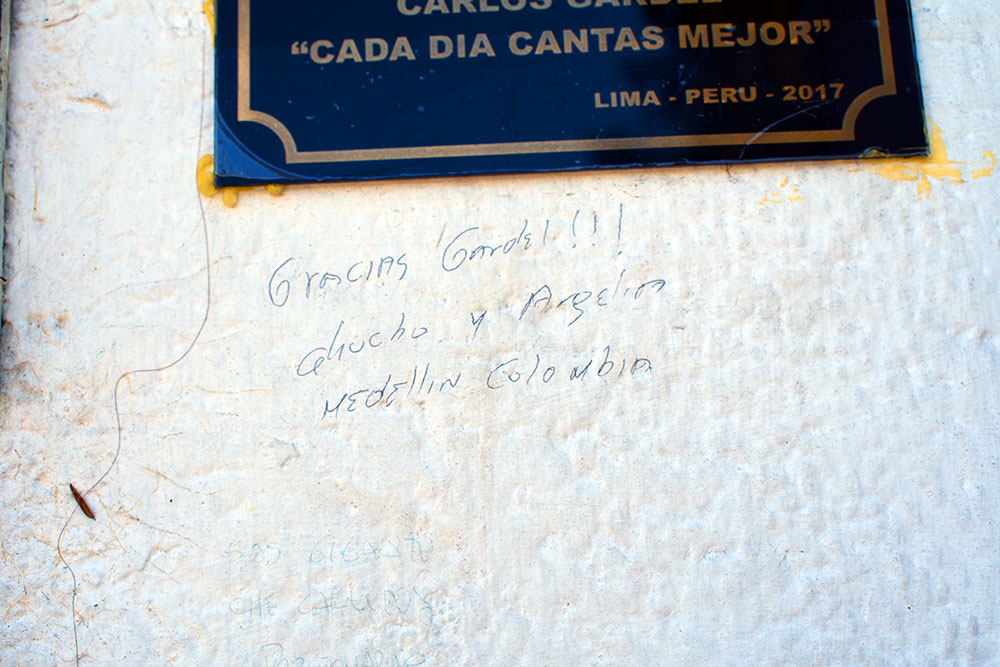 CARLOS GARDEL
“CADA DIA CANTAS MEJOR”
LIMA - PERU - 2017
Gracias Gardel!!!
Chucho y Angelia
MEDELLIN COLOMBIA